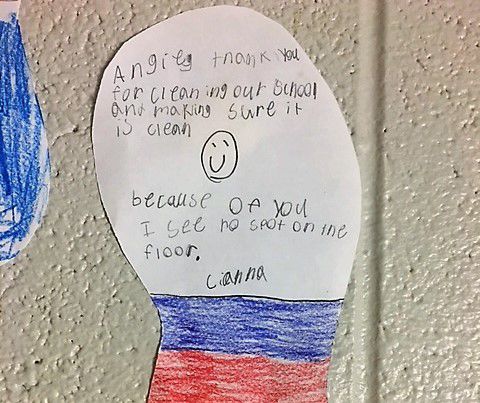 Angiey thank you
for cleaning our School
and making sure it
is clean
because OF you
I see no spot on the
floor.
Cianna